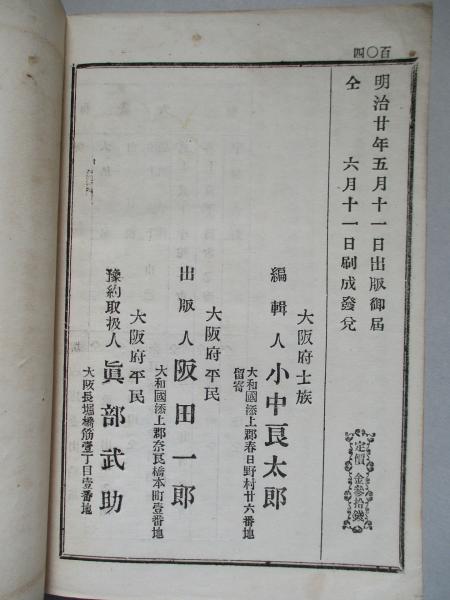 四〇百
明治廿年五月十一日出版御屆
仝 六月十一日刷成發兌
定價 金參拾錢
大阪府士族
編輯人 小中良太郎
大和國添上郡春日野村廿六番地
留寄
大阪府平民
出版人 阪田一郎
大和國添上郡奈良橋本町壹番地
大阪府平民
豫約取扱人 眞部武助
大阪長堀橋筋壹丁目壹番地